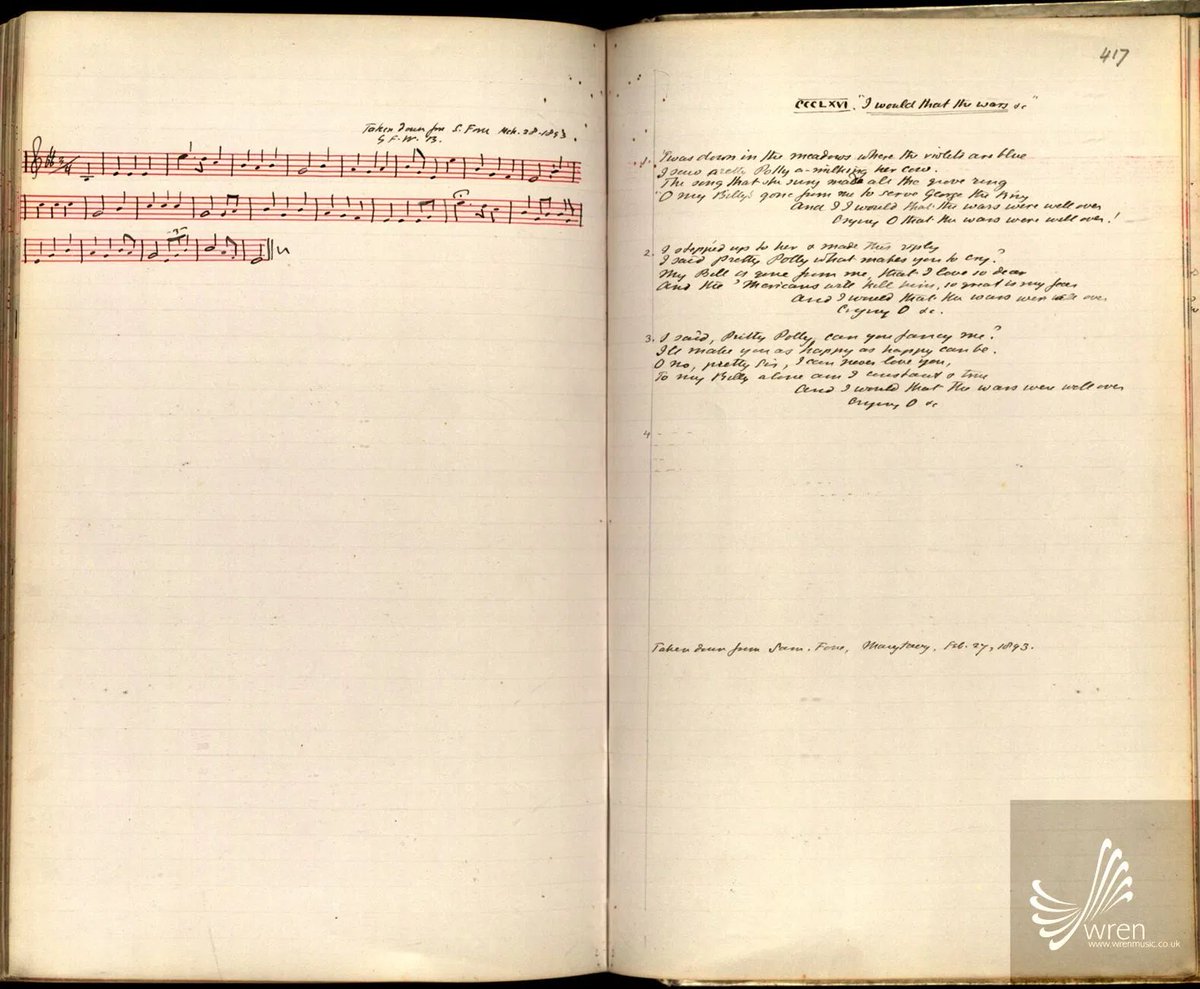 Taken down from S. Fone Mch. 28. 1893
by F. W. B.
3/4
417
CCCLXVI. "I would that the wars &c"
1. 'Twas down in the meadows where the violets are blue
I saw pretty Polly a-milking her cow.
The song that she sung made all the grove ring
"O my Billy's gone from me to serve George the King
And I I would that the wars were well over
Crying O that the wars were well over!
2. I stepped up to her & made this reply
I said pretty Polly what makes you to cry?
My Bill is gone from me, that I love so dear
And the 'Mericans will kill him, so great is my fear
And I would that the wars were well over
Crying O &c.
3. I said, Pritty Polly, can you fancy me?
I'll make you as happy as happy can be.
O no, pretty Sir, I can never love you,
To my Billy alone am I constant & true
And I would that the wars were well over
Crying O &c
4
Taken down from Sam. Fone, Marytavy, Feb. 27, 1893.
wren
www.wrenmusic.co.uk